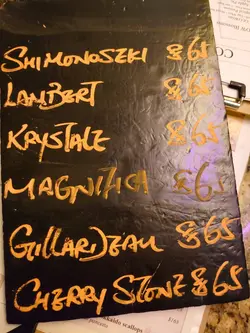 SHIMONOSZKI &65
LAMBERT &65
KRYSTALE &65
MAGNIFICA &65
GILLARDEAU &65
CHERRY STONE &65